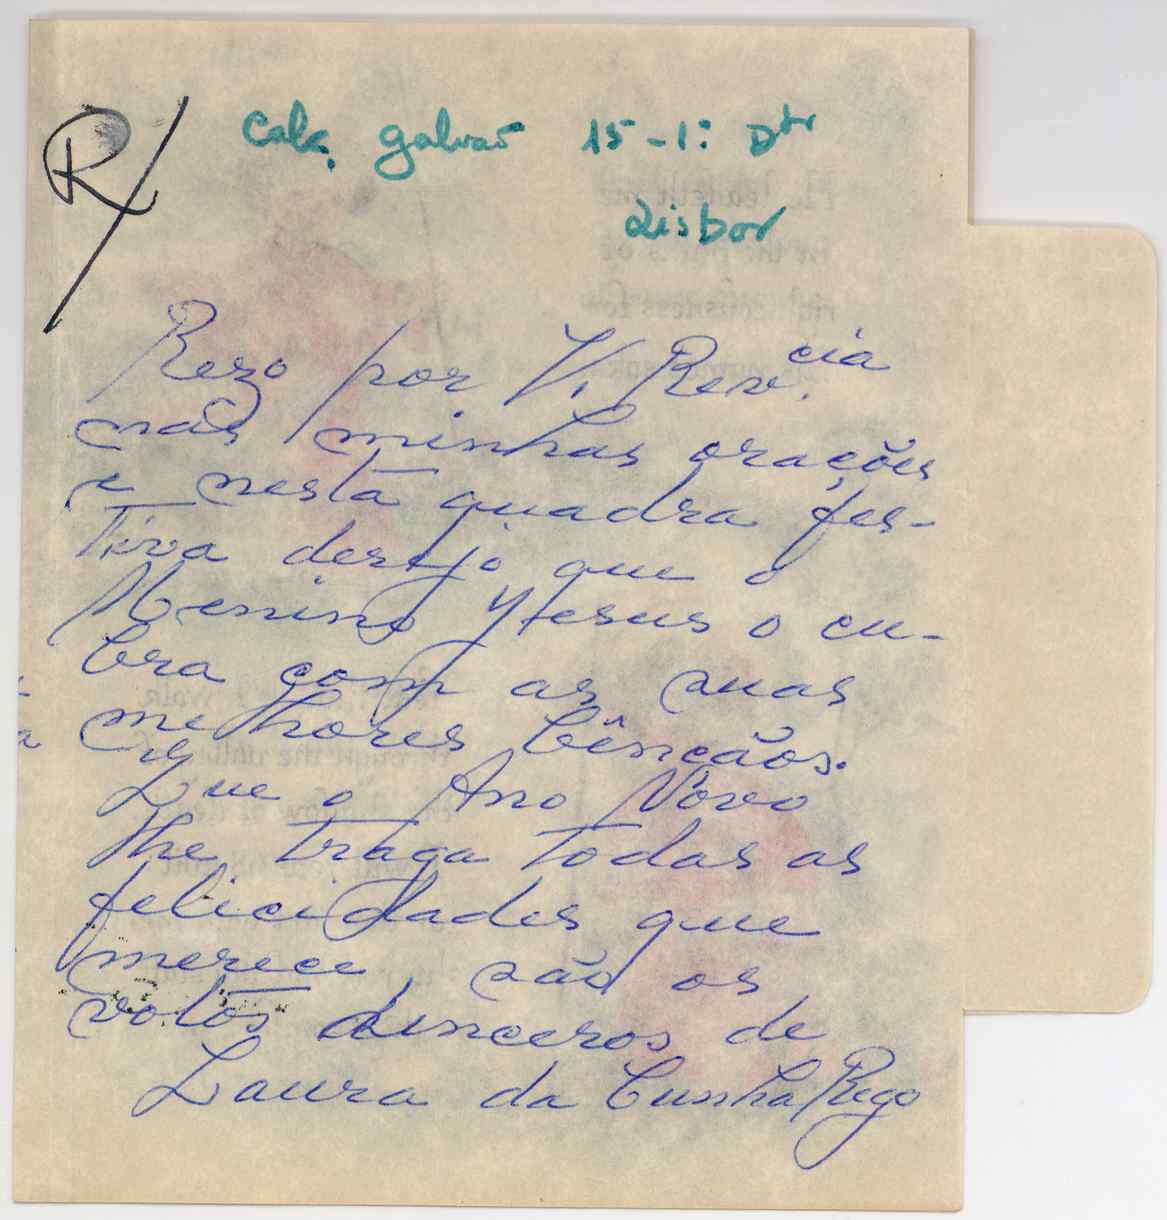 R/
Calç. Galvão 15-1º Dto
Lisboa
Rezo por V. Rev.cia
nas minhas orações
e nesta quadra fes-
tiva desejo que o
Menino Jesus o cu-
bra com as suas
melhores bênçãos.
Que o Ano Novo
lhe traga todas as
felicidades que
merece, são os
votos sinceros de
Laura da Cunha Rego